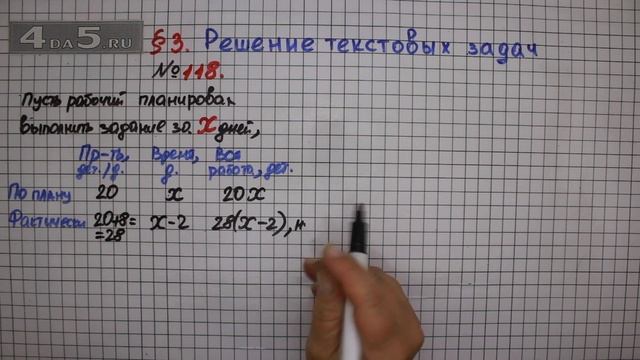 4DA5.RU
§3. Решение текстовых задач
№118.
Пусть рабочий планировал
выполнить задание за x дней,
Пр-ть, дет./д. Время, д. Вся работа, дет.
По плану 20 x 20x
Фактически 20+8= =28 x-2 28(x-2), н